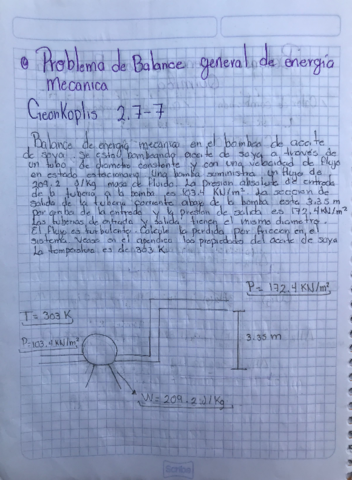 Problema de Balance general de energia
mecanica
Geankoplis 2.7-7
Balance de energia mecanica en el bombeo de aceite
de soya. Se esta bombeando aceite de soya a través de
un tubo de diametro constante y con una velocidad de flujo
en estado estacionario. Una bomba suministra un flujo de
209.2 J/kg masa de fluido. La presion absoluta de entrada
de la tuberia a la bomba es 103.4 KN/m². La seccion de
salida de la tuberia corriente abajo de la bomba esta 3.35 m
por arriba de la entrada y la presion de salida es 172.4 KN/m²
Las tuberias de entrada y salida tienen el mismo diametro.
El flujo es turbulento. Calcule la perdida por friccion en el
sistema. Vease en el apendice las propiedades del aceite de soya
La temperatura es de 303 K.
P= 172.4 KN/m²
T= 303 K
P=103.4 KN/m²
3.35 m
W= 209.2 J/Kg